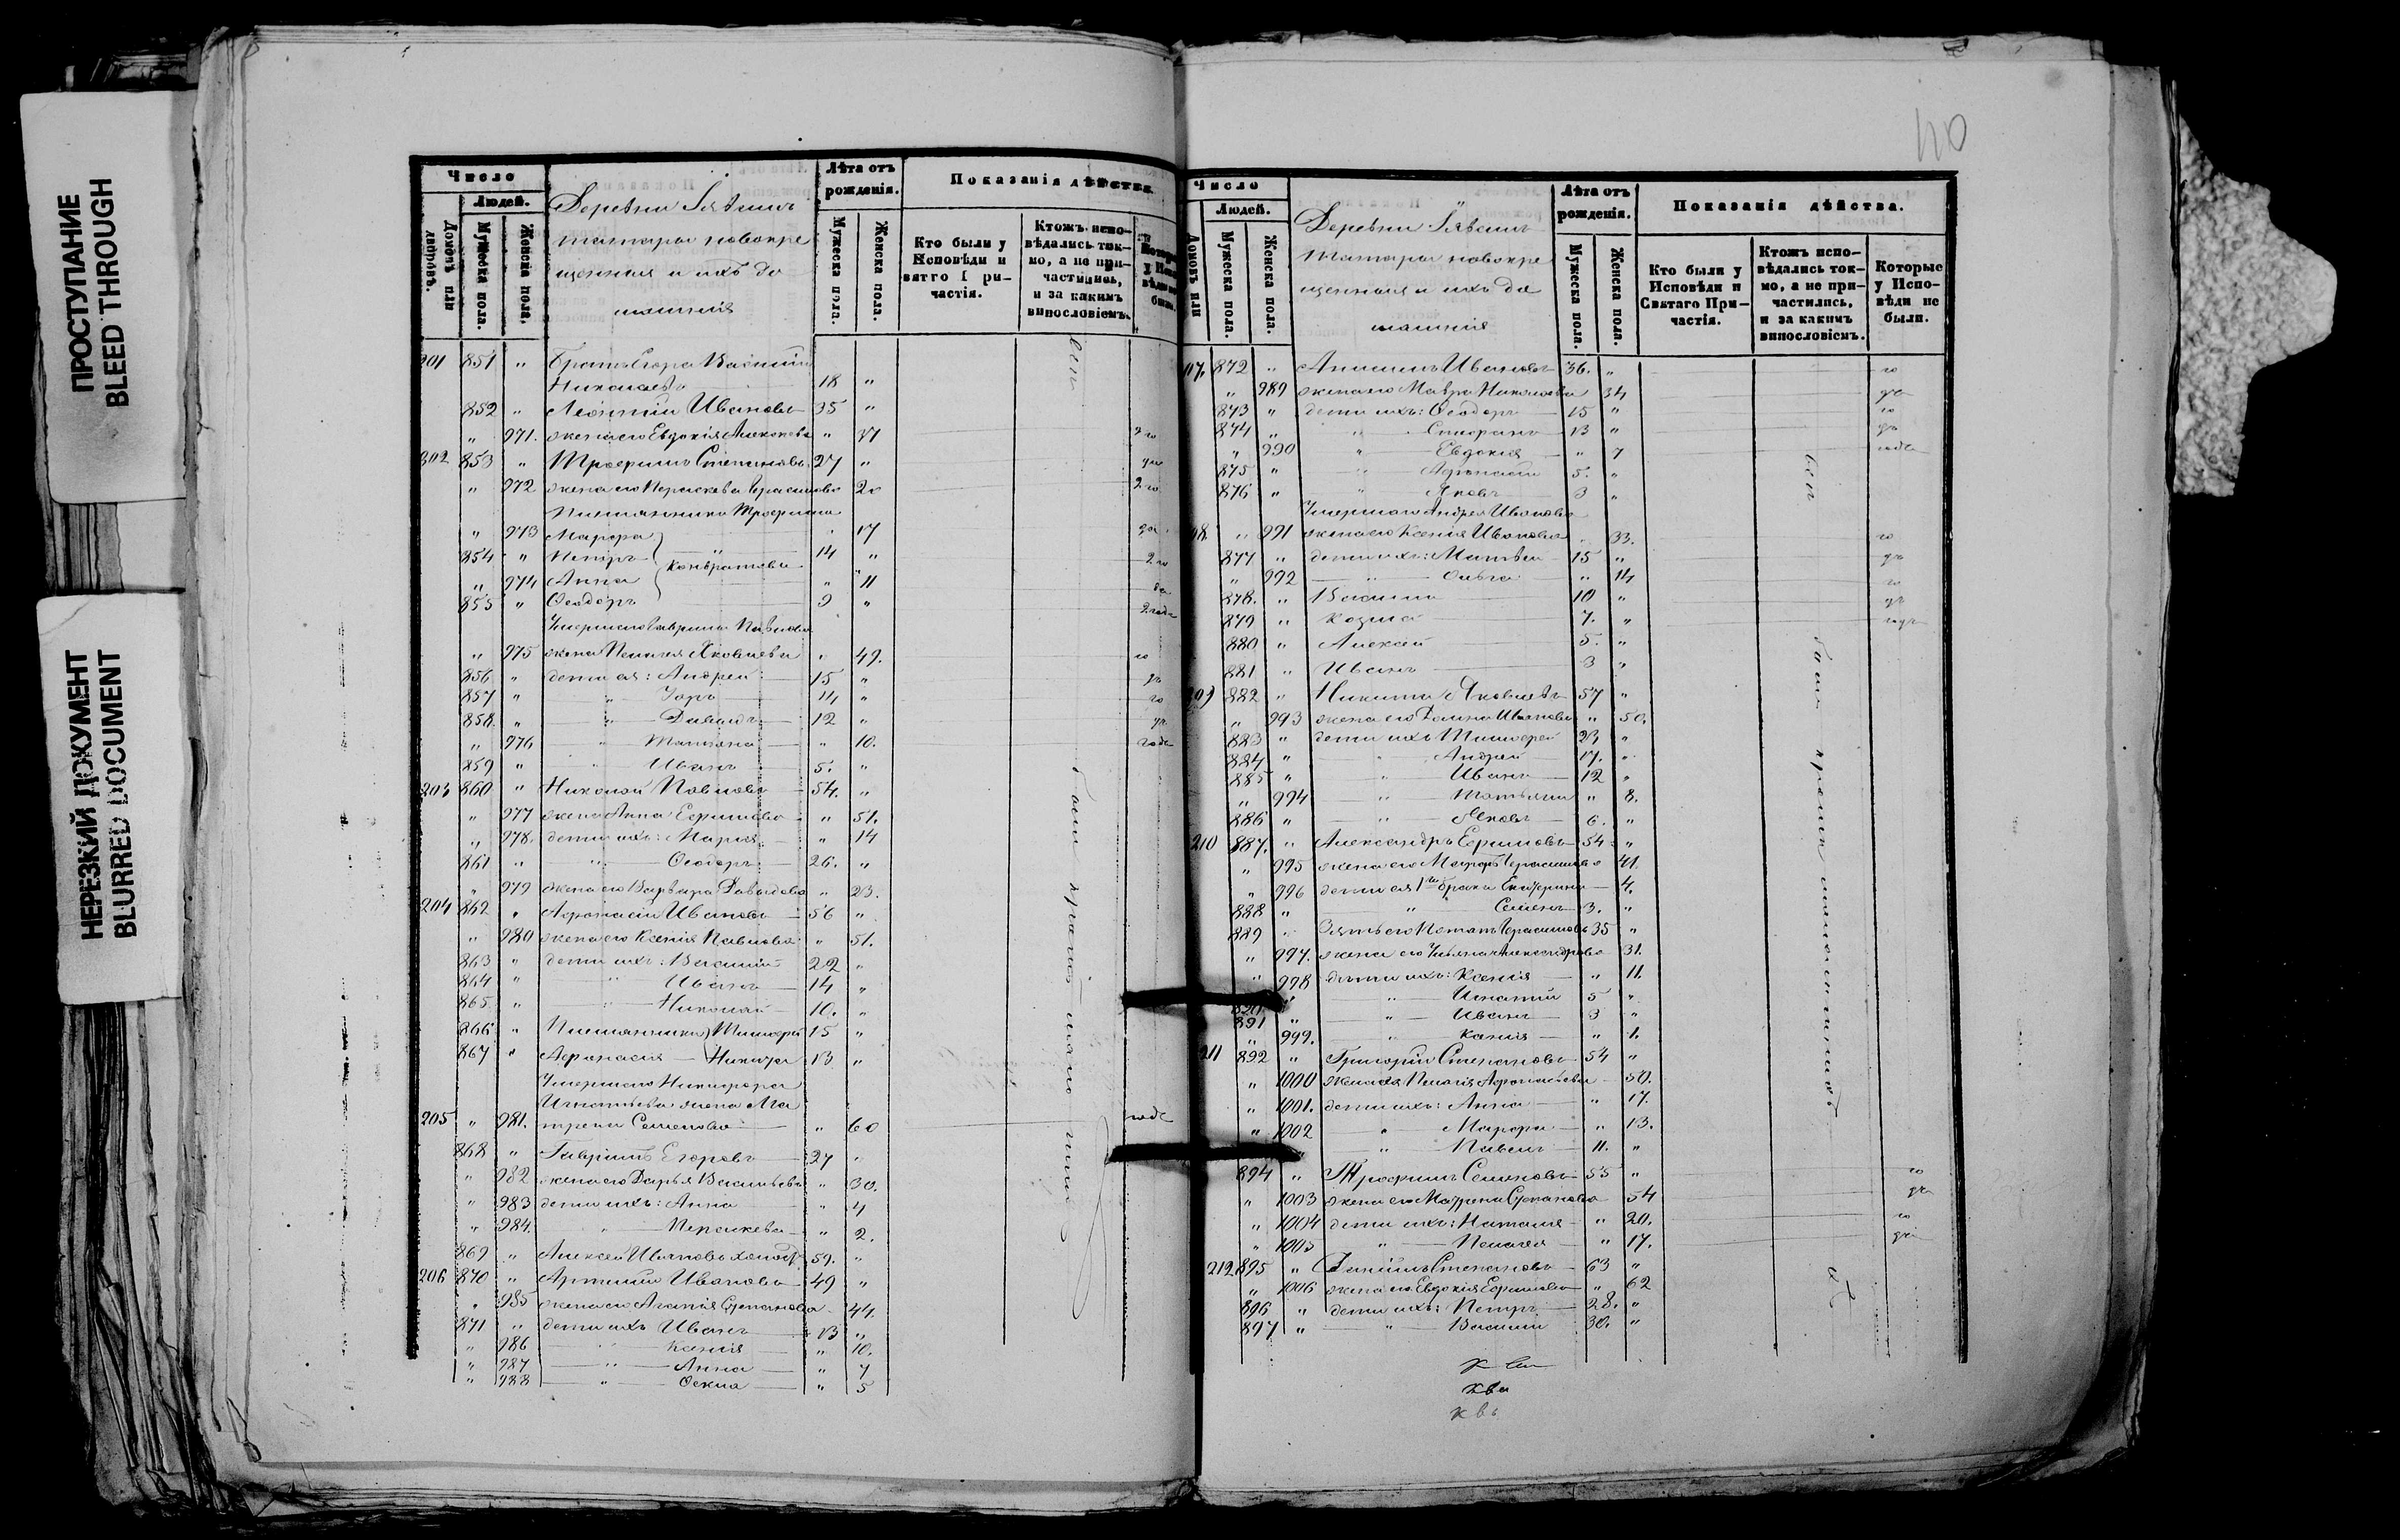 ПРОСТУПАНИЕ
BLEED THROUGH
НЕРЕЗКИЙ ДОКУМЕНТ
BLURRED DOCUMENT
Число
Людей.
Домовъ или дворовъ.
Мужеска пола.
Женска пола.
Деревни
татары новокре
щенныя и ихъ до
машнія
Лѣта отъ рожденія.
Мужеска пола.
Женска пола.
Показанія дѣйства.
Кто были у Исповѣди и
частія.
Ктожъ испо-
вѣдались ток-
мо, а не при-
частились,
и за какимъ
винословіемъ.
201 851 " Братъ Егора Василій
Николаевъ 18 "
852 " Леонтій Ивановъ 35 "
" 971. жена его Евдокія "
202 853 " Трофимъ Степановъ 27 "
" 972 жена его Параскева Герасимова 20
Племянники Трофима
" 973 Марфа 17
854 " Петръ 14 "
Кондратьевы
" 974 Анна " 11
855 " Ѳеодоръ 9 "
Умершаго Гаврила Павлова
" 975 жена Пелагея Яковлева " 49.
856 " дети ея: Андрей 15 "
857 " " 14 "
858. " " Давидъ 12 "
" 976 " Татьяна " 10.
859 " " Иванъ 5. "
203 860 " Николай Павловъ 54. "
" 977 жена Анна Ефимова " 51.
" 978. дети ихъ: Марія " 14
861 " " Ѳеодоръ 26. "
" 979 жена его Варвара Давыдова " 23.
204 862 " Афонасій Ивановъ 56 "
" 980 жена его Ксенія Павлова " 51.
863 " дети ихъ: Василій 22 "
864 " " Иванъ 14 "
865. " " Николай 10. "
866 " Племянники Тимофей 15 "
867 " Афонасія Никита 13 "
Умершаго Никифора
Игнатьева жена Ма
205 " 981. трена Семенова " 60
868 " Гавриилъ Егоровъ 27 "
" 982 жена его Дарья Васильева " 30.
" 983 дети ихъ: Анна " 4
" 984. " Параскева " 2.
869 " Алексей Ивановъ холостъ 59. "
206 870 " Артемій Ивановъ 49 "
" 985 жена его Агапія Степанова 44.
871 " дети ихъ Иванъ 13 "
" 986 " Ксенія " 10.
" 987 " Анна " 7
" 988 " " 5
40
Число
Людей.
Домовъ или
Мужеска пола.
Женска пола.
Деревни
татары новокре
щенныя и ихъ до
машнія
Лѣта отъ
рожденія.
Мужеска пола.
Женска пола.
Показанія дѣйства.
Кто были у
Исповѣди и
Святаго При-
частія.
Ктожъ испо-
вѣдались ток-
мо, а не при-
частились,
и за какимъ
винословіемъ.
Которые
у Испо-
вѣди не
были.
07. 872 " Ивановъ 36. "
" 989 жена его Мавра Николаева 34
873 " дети ихъ: Ѳеодоръ 15 "
874 " " 13 "
" 990 " Евдокія " 7
875 " " Афонасій 5. "
876 " " Яковъ 3 "
Умершаго Андрея Иванова
08 " 991 жена его Ксенія Иванова 33.
877 " дети ихъ: Матвей 15 "
" 992 " Ольга " 14
878. " Василій 10 "
879 " Козма 7. "
880 " Алексей 5. "
881 " Иванъ 3 "
209 882 " Никита Яковлевъ 57 "
" 993 жена его Домна Иванова " 50.
883 " дети ихъ Тимофей 23 "
884 " " Андрей 17. "
885 " " Иванъ 12 "
" 994 " Татьяна " 8.
886 " " Яковъ 6. "
210 887. " Александръ Ефимовъ 54 "
" 995 жена его Марфа Герасимова 41.
" 996 дети ея 1го брака Екатерина 4.
888 " " Семенъ 3. "
889 " Зять его Потапъ Герасимовъ 35 "
" 997. жена его Ульяна Александрова 31.
" 998 дѣти ихъ: Ксенія " 11.
" " Игнатій 5 "
891 " " Иванъ 3 "
" 999. " Ксенія " 1.
211 892 " Григорій Степановъ 54 "
" 1000 жена его Пелагія Афонасьева 50.
" 1001. дети ихъ: Анна " 17.
" 1002 " Марфа " 13.
" Павелъ 11. "
894 " Трофимъ Семеновъ 55 "
" 1003 жена его Матрена Степанова 54
" 1004 дети ихъ: Наталія " 20.
" 1005 " Пелагея " 17.
212 895 " Данилъ Степановъ 63 "
" 1006 жена его Евдокія Ефимова " 62
896 " дети ихъ: Петръ 28. "
897 " " Василій 30. "